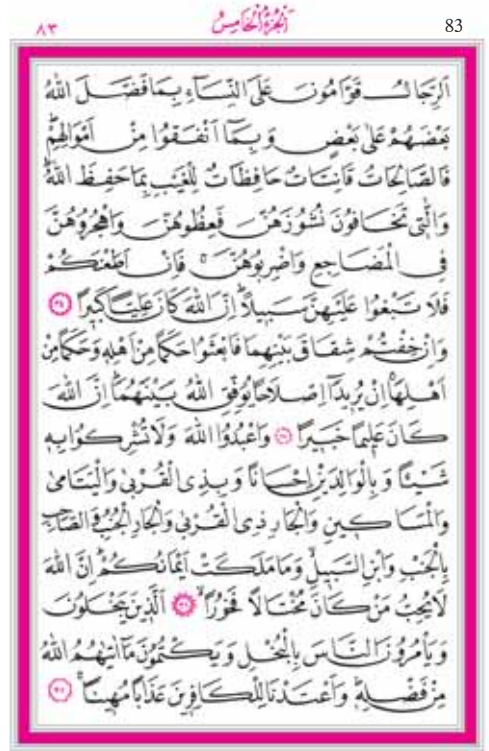 ٨٣ اَلْجُزْءُ الْخَامِسُ 83
اَلرِّجَالُ قَوَّامُونَ عَلَى النِّسَٓاءِ بِمَا فَضَّلَ اللّٰهُ
بَعْضَهُمْ عَلٰى بَعْضٍ وَبِمَٓا اَنْفَقُوا مِنْ اَمْوَالِهِمْۜ
فَالصَّالِحَاتُ قَانِتَاتٌ حَافِظَاتٌ لِلْغَيْبِ بِمَا حَفِظَ اللّٰهُۜ
وَالّٰت۪ي تَخَافُونَ نُشُوزَهُنَّ فَعِظُوهُنَّ وَاهْجُرُوهُنَّ
فِي الْمَضَاجِعِ وَاضْرِبُوهُنَّۚ فَاِنْ اَطَعْنَكُمْ
فَلَا تَبْغُوا عَلَيْهِنَّ سَب۪يلاًۜ اِنَّ اللّٰهَ كَانَ عَلِياًّ كَب۪يراً ﴿٣٤﴾
وَاِنْ خِفْتُمْ شِقَاقَ بَيْنِهِمَا فَابْعَثُوا حَكَماً مِنْ اَهْلِه۪ وَحَكَماً مِنْ
اَهْلِهَاۚ اِنْ يُر۪يدَٓا اِصْلَاحاً يُوَفِّقِ اللّٰهُ بَيْنَهُمَاۜ اِنَّ اللّٰهَ
كَانَ عَل۪يماً خَب۪يراً ﴿٣٥﴾ وَاعْبُدُوا اللّٰهَ وَلَا تُشْرِكُوا بِه۪
شَيْـٔاً وَبِالْوَالِدَيْنِ اِحْسَاناً وَبِذِي الْقُرْبٰى وَالْيَتَامٰى
وَالْمَسَاك۪ينِ وَالْجَارِ ذِي الْقُرْبٰى وَالْجَارِ الْجُنُبِ وَالصَّاحِبِ
بِالْجَنْبِ وَابْنِ السَّب۪يلِۙ وَمَا مَلَكَتْ اَيْمَانُكُمْۜ اِنَّ اللّٰهَ
لَا يُحِبُّ مَنْ كَانَ مُخْتَالاً فَخُوراًۙ ﴿٣٦﴾ اَلَّذ۪ينَ يَبْخَلُونَ
وَيَأْمُرُونَ النَّاسَ بِالْبُخْلِ وَيَكْتُمُونَ مَٓا اٰتٰيهُمُ اللّٰهُ
مِنْ فَضْلِه۪ۜ وَاَعْتَدْنَا لِلْكَافِر۪ينَ عَذَاباً مُه۪يناًۚ ﴿٣٧﴾